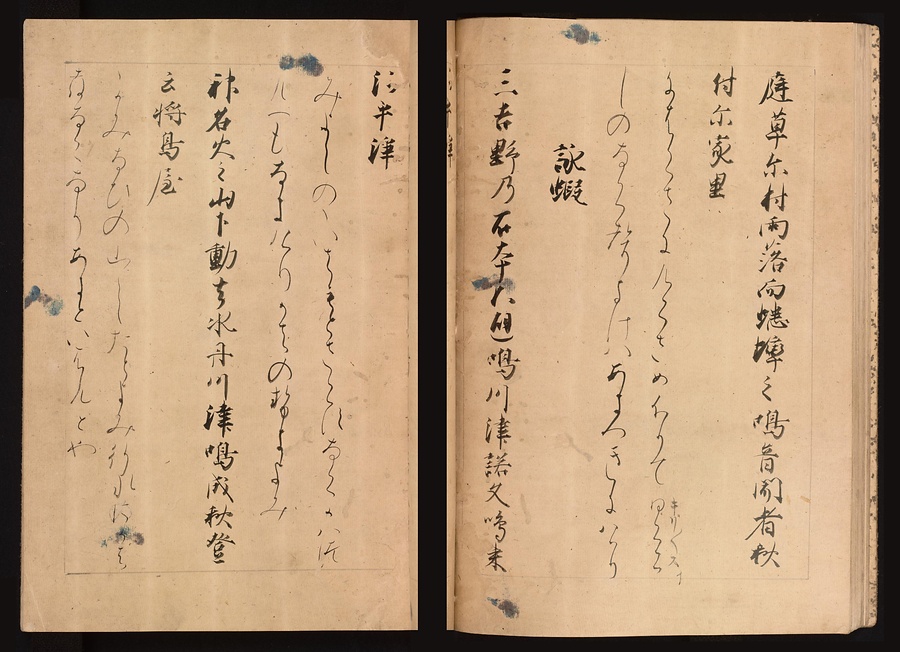 庭草尓村雨落而蟋蟀之鳴音聞者秋
付尓家里
にはくさにむらさめふりてひくらし
しのなくこゑきけはあきつきにけり
詠蝦
三吉野乃石本不避鳴川津諾文鳴来
河乎浄
みよしのゝいはもとさらすなくかはつ
むへもなきけりかはの瀬きよみ
神名火之山下動去水丹川津鳴成秋登
云将鳥屋
かみなひの山したとよみ行水にかは
なくなりあきといはんとや